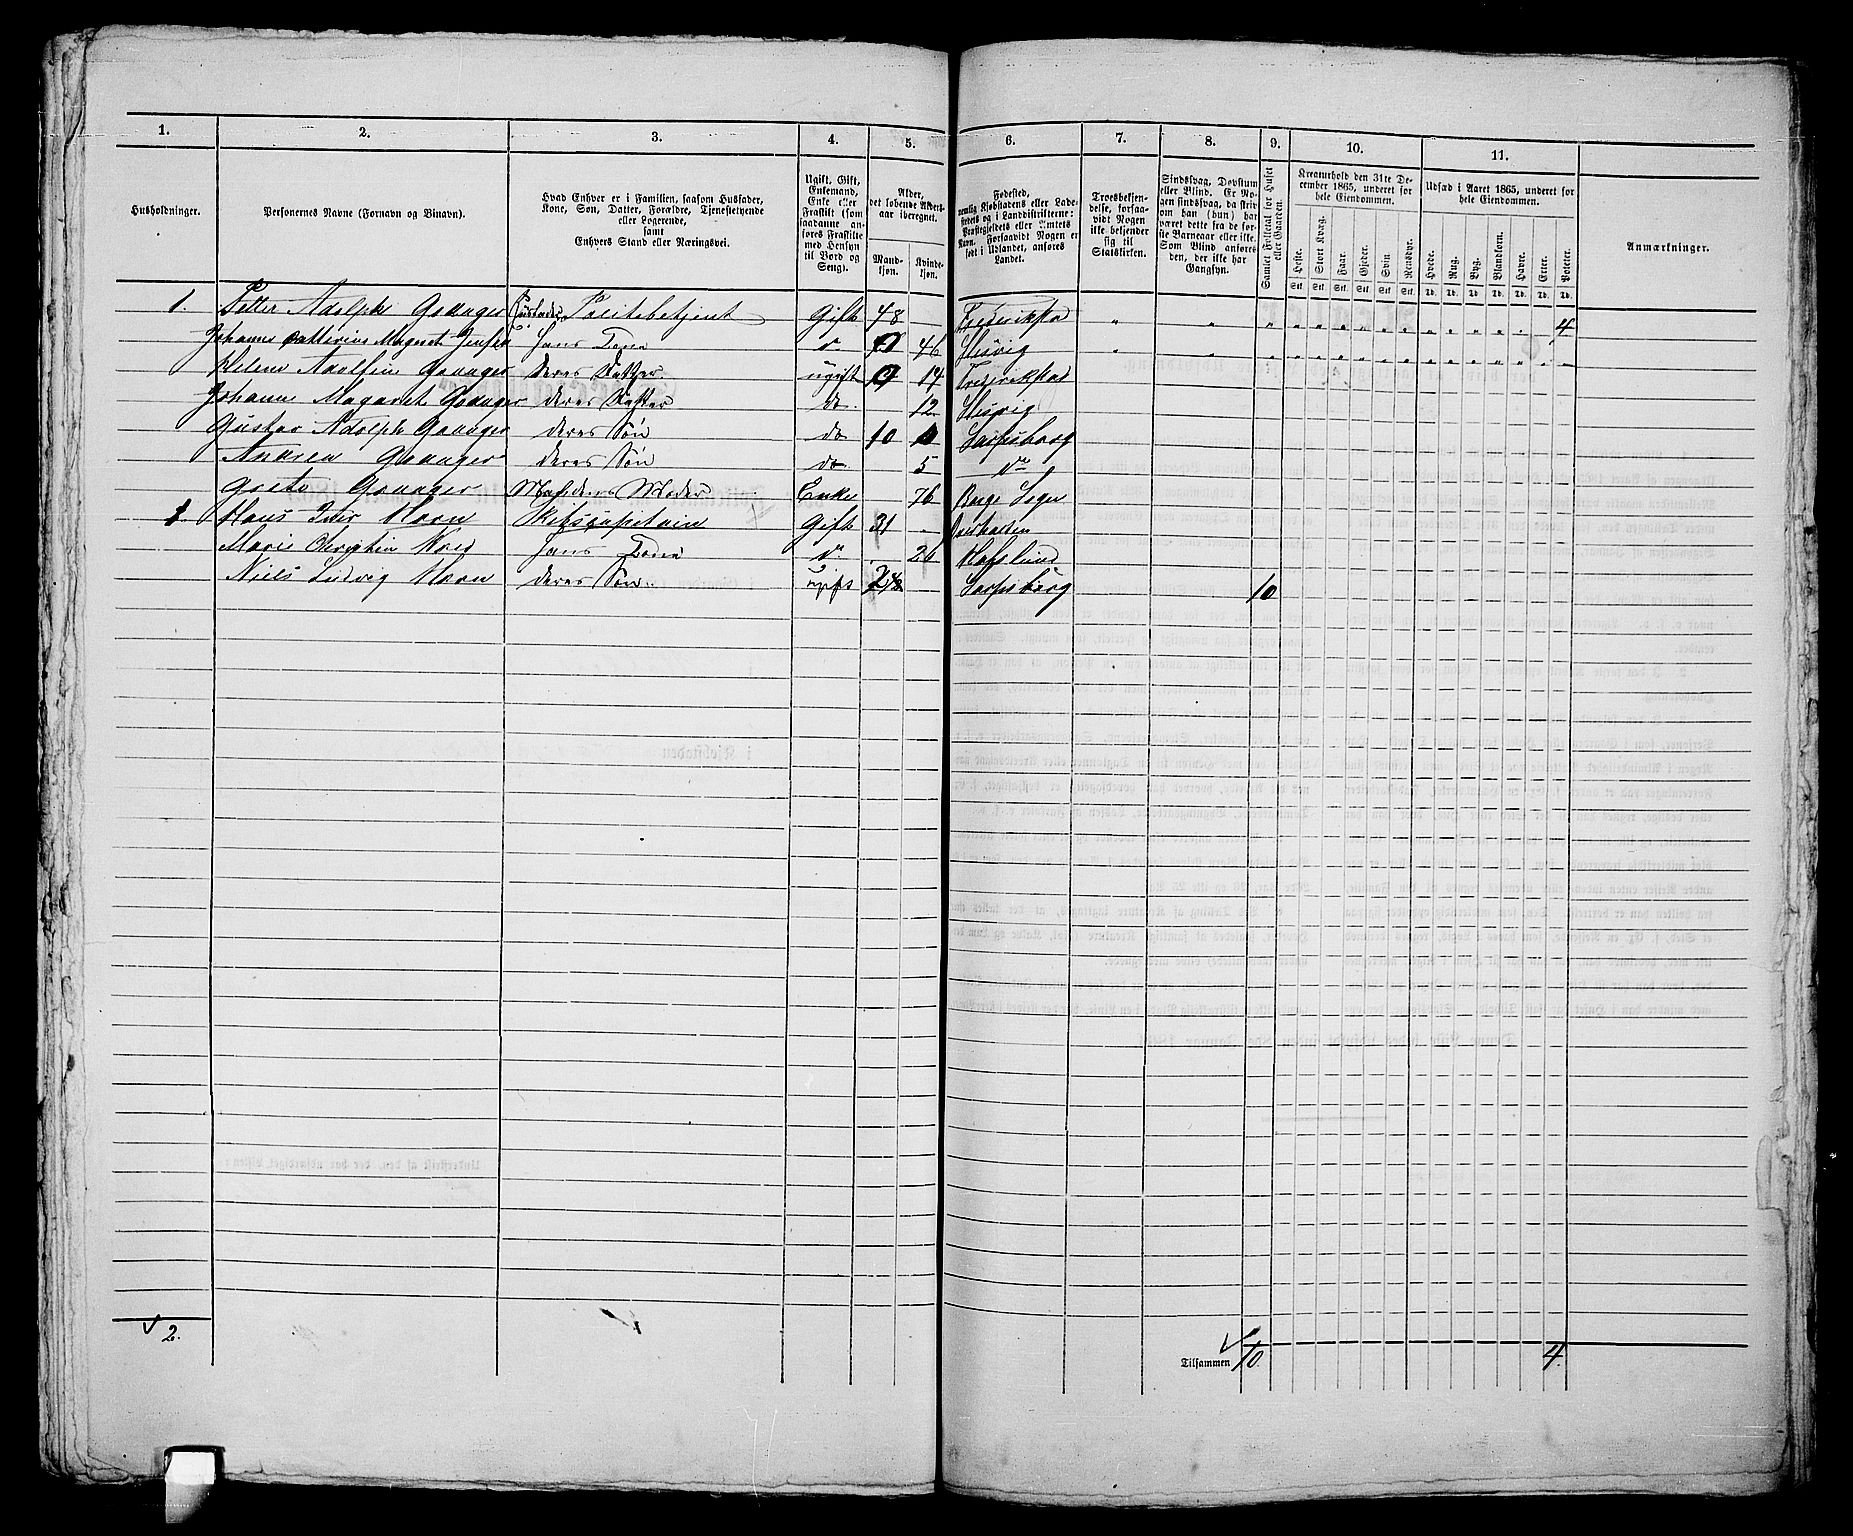 1. 2. 3. 4. 5. 6. 7. 8. 9. 10. 11.
Husholdninger.
Personernes Navne (Fornavn og Binavn).
Hvad Enhver er i Familien, saasom Husfader,
Kone, Søn, Datter, Forældre, Tjenestetyende
eller Logerende,
samt
Enhvers Stand eller Næringsvei.
Ugift, Gift,
Enkemand,
Enke eller
Fraskilt (som
saadanne an-
føres Fraskilte
med Hensyn
til Bord og
Seng).
Alder,
det løbende Alders-
aar iberegnet.
Mand-
kjøn.
Kvinde-
kjøn.
Fødested,
nemlig Kjøbstadens eller Lade-
stedets og i Landdistrikterne:
Præstegjeldets eller Amtets
Navn. Forsaavidt Nogen er
født i Udlandet, anføres
Landet.
Troesbekjen-
delse, forsaa-
vidt Nogen
ikke bekjender
sig til
Statskirken.
Sindssvag, Døvstum
eller Blind. Er No-
gen sindssvag, da skriv
om han (hun) har
været dette fra de før-
ste Barneaar eller ikke.
Som Blind anføres
den, der ikke har
Gangsyn.
Samlet Folketal for Huset
eller Gaarden.
Kreaturhold den 31te De-
cember 1865, underet for
hele Eiendommen.
Heste. Stort Kvæg. Faar. Gjeder. Svin. Rensdyr.
Stk. Stk. Stk. Stk. Stk. Stk.
Udsæd i Aaret 1865, underet for
hele Eiendommen.
Hvede. Rug. Byg. Blandkorn. Havre. Erter. Poteter.
Td. Td. Td. Td. Td. Td. Td.
Anmærkninger.
1. Petter Adolph Granager Politebetjent Gift 48 Frederikstad 4
Johanne Magnet Hans Kone do 46
Helene Adolfin Granager deres Datter ugift 14 Frederikstad
Johanne Magaret Granager deres Datter do 12
Gustav Adolph Granager deres Søn do 10 Sarpsborg
Andrea Granager deres Søn do 5 do
Grete Granager Moder Enke 76
1 Hans Iver Horn Skibscapitain Gift 31
Marie Christin Hans Kone do 26 Hafslund
Niels Ludvig Horn deres Søn ugift 2 Sarpsborg 10
2.
Tilsammen 10. 4.